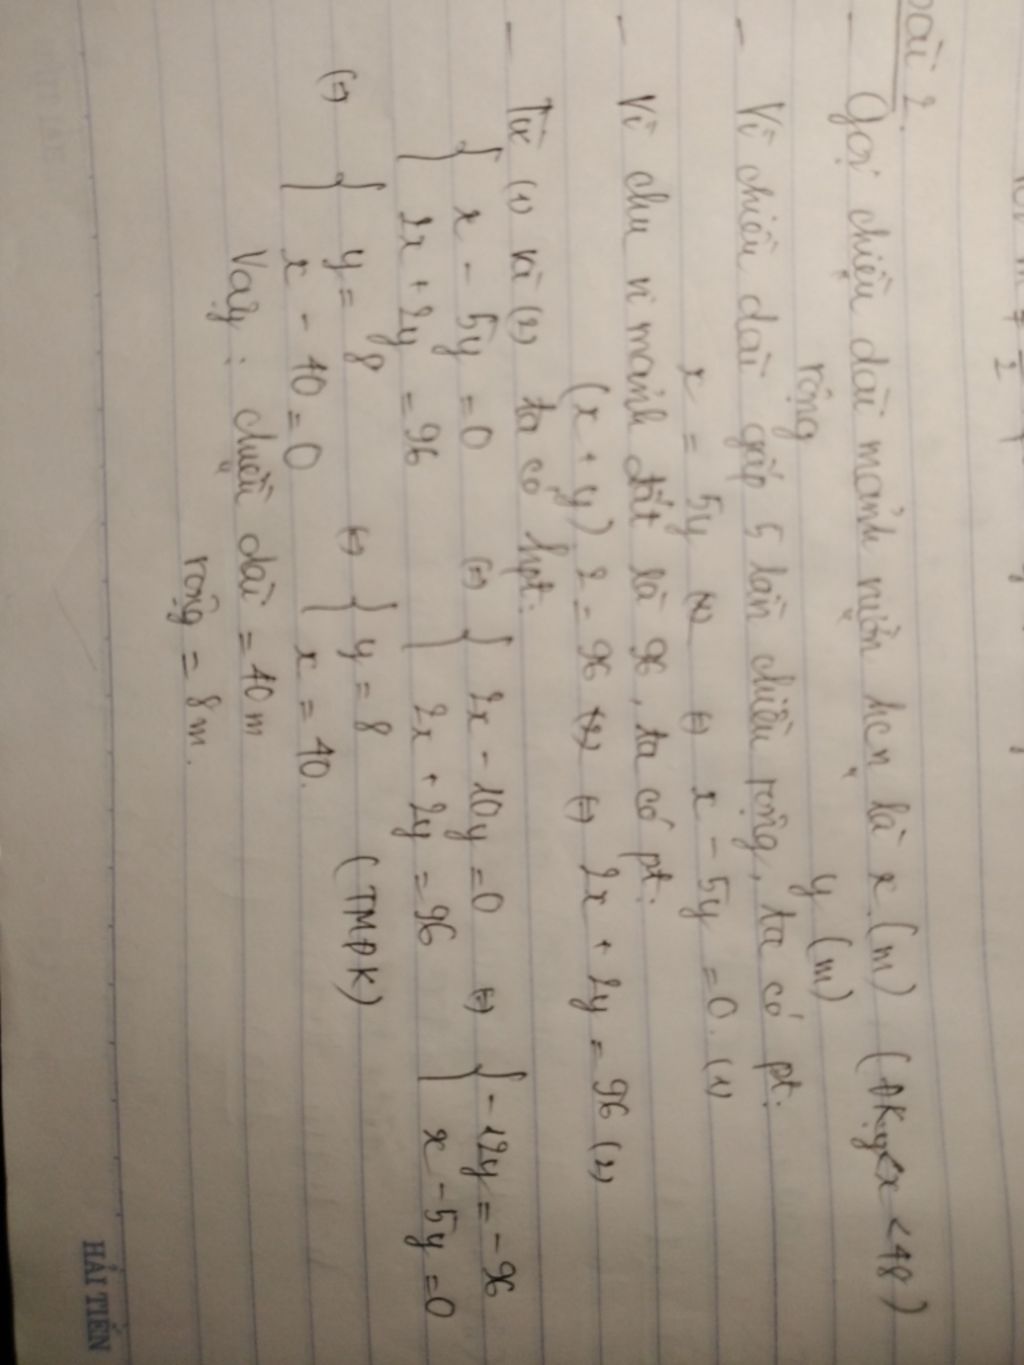 Bài 2.
- Gọi chiều dài mảnh vườn hcn là x (m) (ĐK y<x <48)
rộng y (m)
- Vì chiều dài gấp 5 lần chiều rộng, ta có pt:
x = 5y (=) x - 5y = 0. (1)
- Vì chu vi mảnh đất là 96, ta có pt:
(x + y) 2 = 96 (=) 2x + 2y = 96 (2)
- Từ (1) và (2) ta có hpt:
{ x - 5y = 0 (=) { 2x - 10y = 0 (=) { -12y = -96
2x + 2y = 96 2x + 2y = 96 x - 5y = 0
(=) { y = 8 (=) { y = 8 (TMĐK)
x - 40 = 0 x = 40.
Vậy: chiều dài = 40 m
rộng = 8 m.
HẢI TIẾN